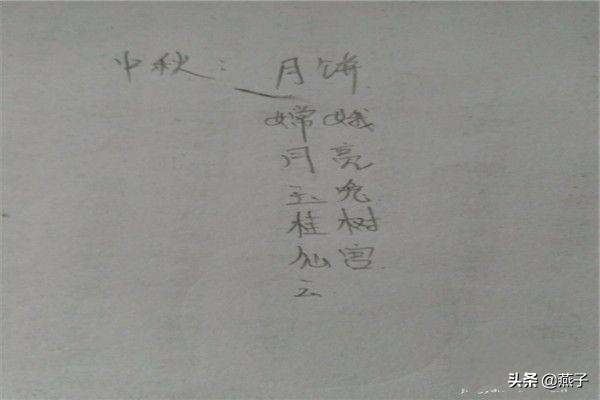 中秋：月饼
嫦娥
月亮
玉兔
桂树
仙宫
云
头条 @燕子